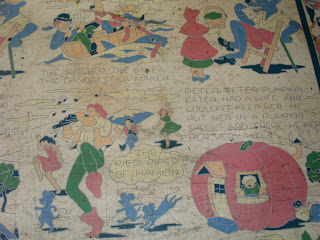 THE BUTCHER THE BAKER
THE CANDLESTICK MAKER
PETER PETER PUMPKIN
EATER HAD A WIFE AND
COULDN'T KEEP HER HE
PUT HER IN A PUMPKIN
SHELL AND THERE HE
KEPT HER VERY WELL
THE
PIED PIPER
OF HAMELIN